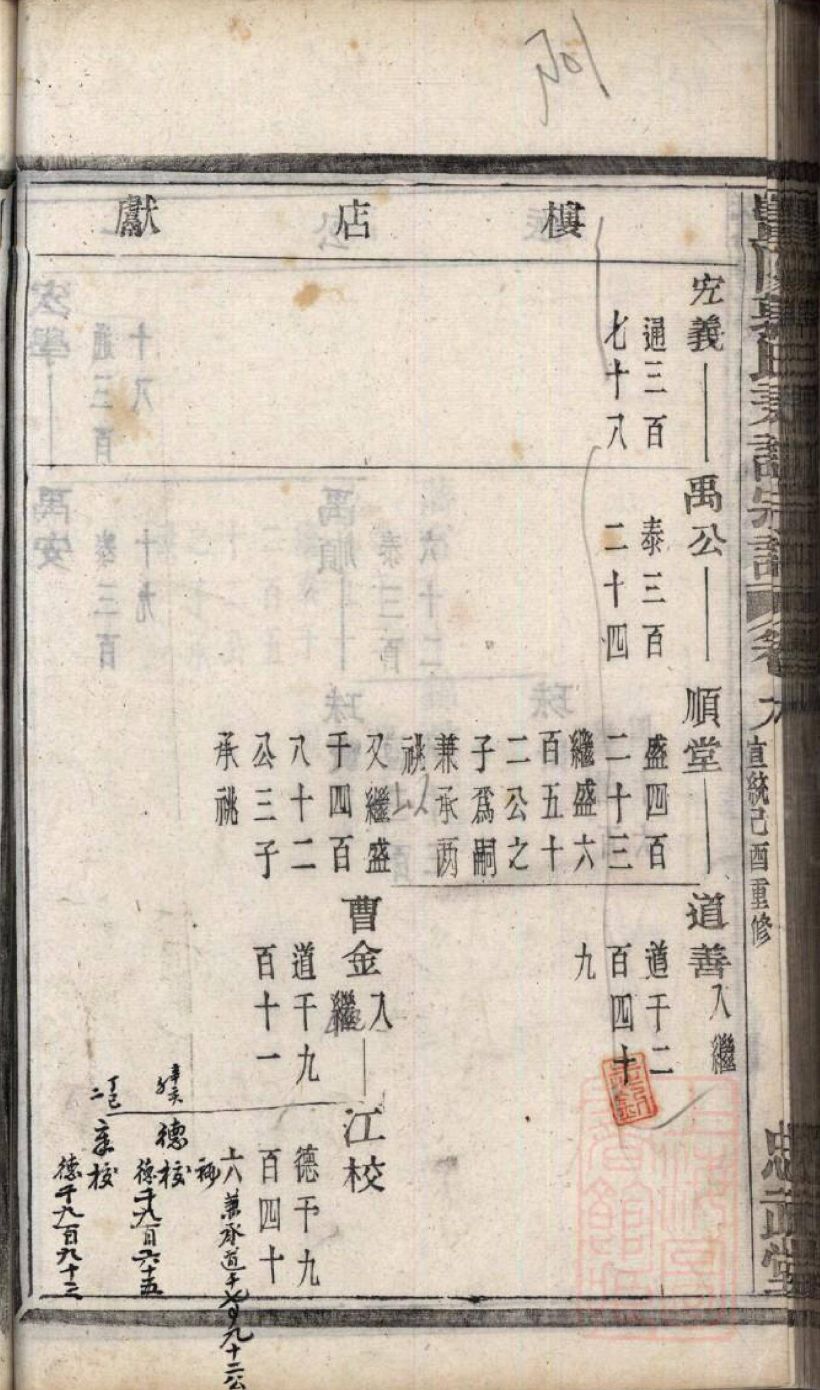 宣統己酉重修
樓店獻
完義
通三百
七十八
禹公
泰三百
二十四
順堂
盛四百
二十三
繼盛六
百五十
二公之
子爲嗣
兼承两
祧以
又繼盛
千四百
八十二
公三子
承祧
道善 入繼
道千二
百四十
九
曹金 入繼
道千九
百十一
江校
德千九
百四十
六 兼承道千七百九十二公
祧
德校
德千九百六十五
丁巳
章校
德千九百九十三